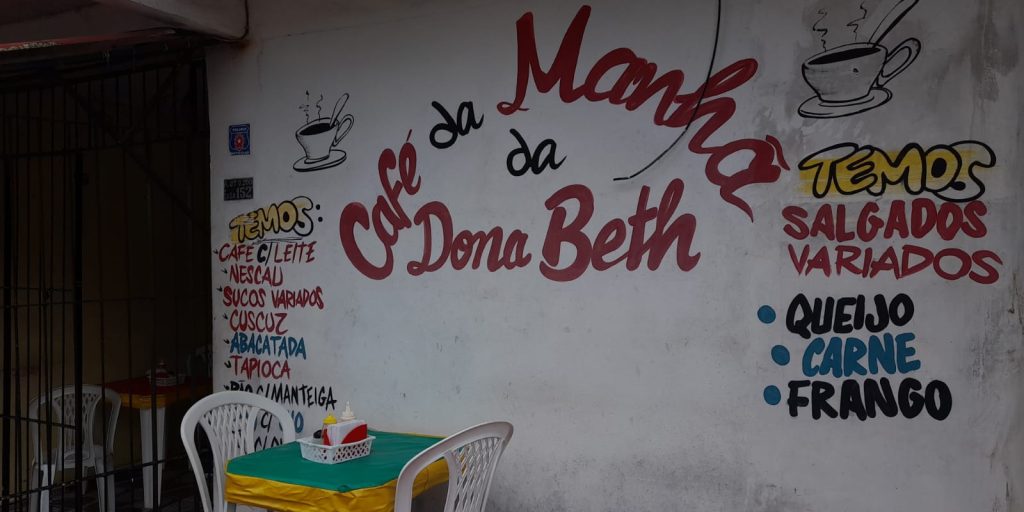 Café da Manhã
da
Dona Beth
TEMOS:
CAFÉ C/ LEITE
NESCAU
SUCOS VARIADOS
CUSCUZ
ABACATADA
TAPIOCA
PÃO C/ MANTEIGA
TEMOS
SALGADOS
VARIADOS
QUEIJO
CARNE
FRANGO